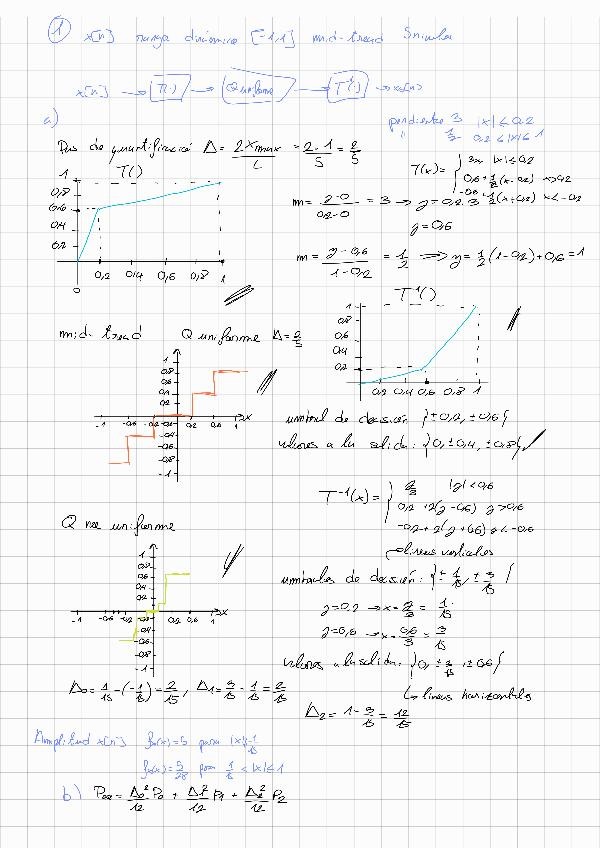 1 x[n] rango dinámico [-1,1] mid-tread 5 niveles
x[n] → T(·) → Q uniforme → T⁻¹(·) → x[n]
a)
pendiente 3 |x| ≤ 0,2
" 1/2 0,2 ≤ |x| ≤ 1
Pas de quantificació Δ = 2Xmax/L = 2·1/5 = 2/5
T(x) = { 3x |x| ≤ 0,2
0,6 + 1/2(x-0,2) x > 0,2
-0,6 + 1/2(x+0,2) x < -0,2
T()
1
0,8
0,6
0,4
0,2
0 0,2 0,4 0,6 0,8 1
m = y-0/0,2-0 = 3 → y = 0,2·3
y = 0,6
m = y-0,6/1-0,2 = 1/2 ⟹ y = 1/2(1-0,2)+0,6 = 1
T⁻¹()
1
0,8
0,6
0,4
0,2
0,2 0,4 0,6 0,8 1
mid-tread Q uniforme Δ = 2/5
1
0,8
0,6
0,4
0,2
-1 -0,6 -0,2 0,2 0,6 1 x
-0,4
-0,6
-0,8
-1
umbral de decisión {±0,2, ±0,6}
valores a la salida: {0, ±0,4, ±0,8}
T⁻¹(x) = { y/3 |y| < 0,6
0,2 + 2(y-0,6) y > 0,6
-0,2 + 2(y+0,6) y < -0,6
Q no uniforme
líneas verticales
umbrales de decisión: {±1/15, ±3/15}
y=0,2 → x = y/3 = 1/15
y=0,6 → x = 0,6/3 = 3/15
1
0,8
0,6
0,4
0,2
-1 -0,6 -0,2 0,2 0,6 1 x
-0,4
-0,6
-0,8
-1
valores a la salida: {0, ±2/15, ±0,6}
↳ líneas horizontales
Δ₀ = 1/15 - (-1/15) = 2/15, Δ₁ = 3/15 - 1/15 = 2/15
Δ₂ = 1 - 3/15 = 12/15
Amplitud x[n] fx(x) = 5 para |x| ≤ 1/15
fx(x) = 5/28 para 1/15 < |x| ≤ 1
b) = Δ₀²/12 P₀ + Δ₁²/12 P₁ + Δ₂²/12 P₂